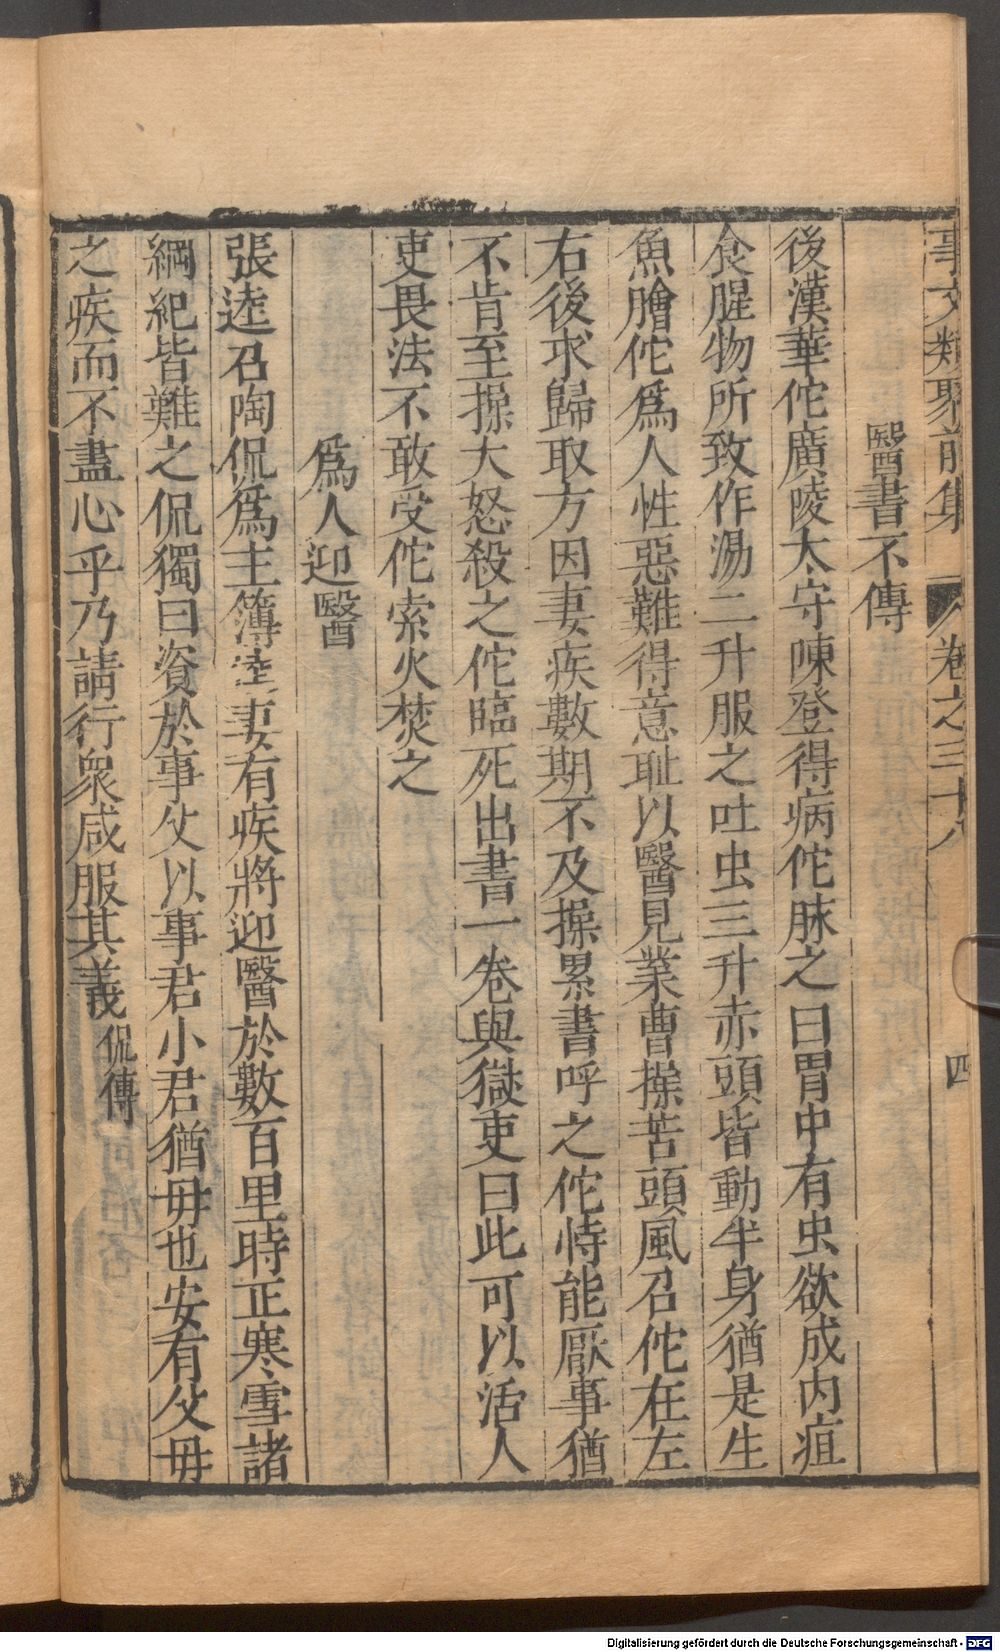 事文類聚前集 卷之三十八 四
醫書不傳
後漢華佗廣陵太守陳登得病佗脉之曰胃中有虫欲成内疽
食腥物所致作湯二升服之吐虫三升赤頭皆動半身猶是生
魚膾佗爲人性惡難得意耻以醫見業曹操苦頭風召佗在左
右後求歸取方因妻疾數期不及操累書呼之佗恃能厭事猶
不肯至操大怒殺之佗臨死出書一卷與獄吏曰此可以活人
吏畏法不敢受佗索火焚之
爲人迎醫
張逵召陶侃爲主簿逵妻有疾將迎醫於數百里時正寒雪諸
綱紀皆難之侃獨曰資於事父以事君小君猶毋也安有父毋
之疾而不盡心乎乃請行衆咸服其義侃傳
Digitalisierung gefördert durch die Deutsche Forschungsgemeinschaft - DFG